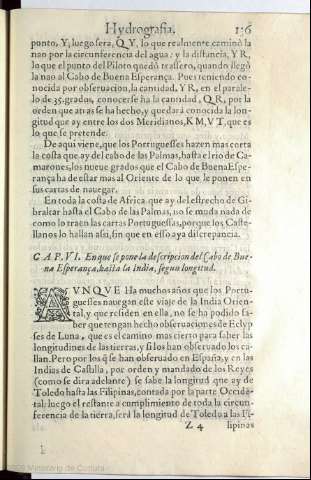 Hydrografia. 136
ponto, Y, luego sera, Q Y, lo que realmente caminò la
nao por la circunferencia del agua: y la distancia, Y R,
lo que el punto del Piloto quedò trassero, quando llegò
la nao al Cabo de Buena Esperança. Pues teniendo co-
nocida por obseruacion, la cantidad, Y R, en el parale-
lo de 35. grados, conocerse ha la cantidad, Q R, por la
orden que atras se ha hecho, y quedarà conocida la lon-
gitud que ay entre los dos Meridianos, K M, V T, que es
lo que se pretende.
De aqui viene, que los Portuguesses hazen mas corta
la costa que ay del cabo de las Palmas, hasta el rio de Ca-
marones, los nueue grados que el Cabo de Buena Espe-
rança ha de estar mas al Oriente de lo que le ponen en
sus cartas de nauegar.
En toda la costa de Africa que ay del estrecho de Gi-
braltar hasta el Cabo de las Palmas, no se muda nada de
como lo traen las cartas Portuguessas, porque los Caste-
llanos lo hallan assi, sin que en esso aya discrepancia.
C A P. VI. En que se pone la descripcion del Cabo de Bue-
na Esperança, hasta la India, segun longitud.
AVNQVE Ha muchos años que los Portu-
guesses nauegan este viaje de la India Orien-
tal, y que residen en ella, no se ha podido sa-
ber que tengan hecho obseruaciones de Eclyp
ses de Luna, que es el camino mas cierto para saber las
longitudines de las tierras, y si los han obseruado los ca-
llan. Pero por los q̃ se han obseruado en España, y en las
Indias de Castilla, por orden y mandado de los Reyes
(como se dira adelante) se sabe la longitud que ay de
Toledo hasta las Filipinas, contada por la parte Occidē-
tal: luego el restante a cumplimiento de toda la circun-
ferencia de la tierra, serà la longitud de Toledo a las Fi-
Z 4 lipinas
Ministerio de Cultura